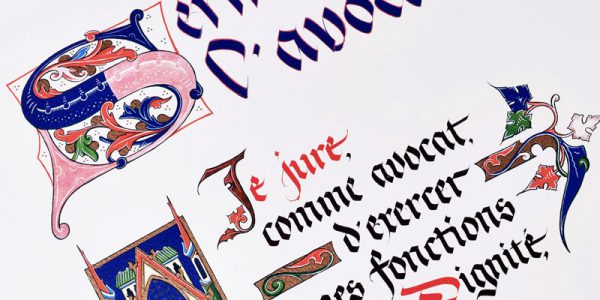 D'avoca
Je jure,
comme avocat,
d'exercer
mes fonctions
Dignité,